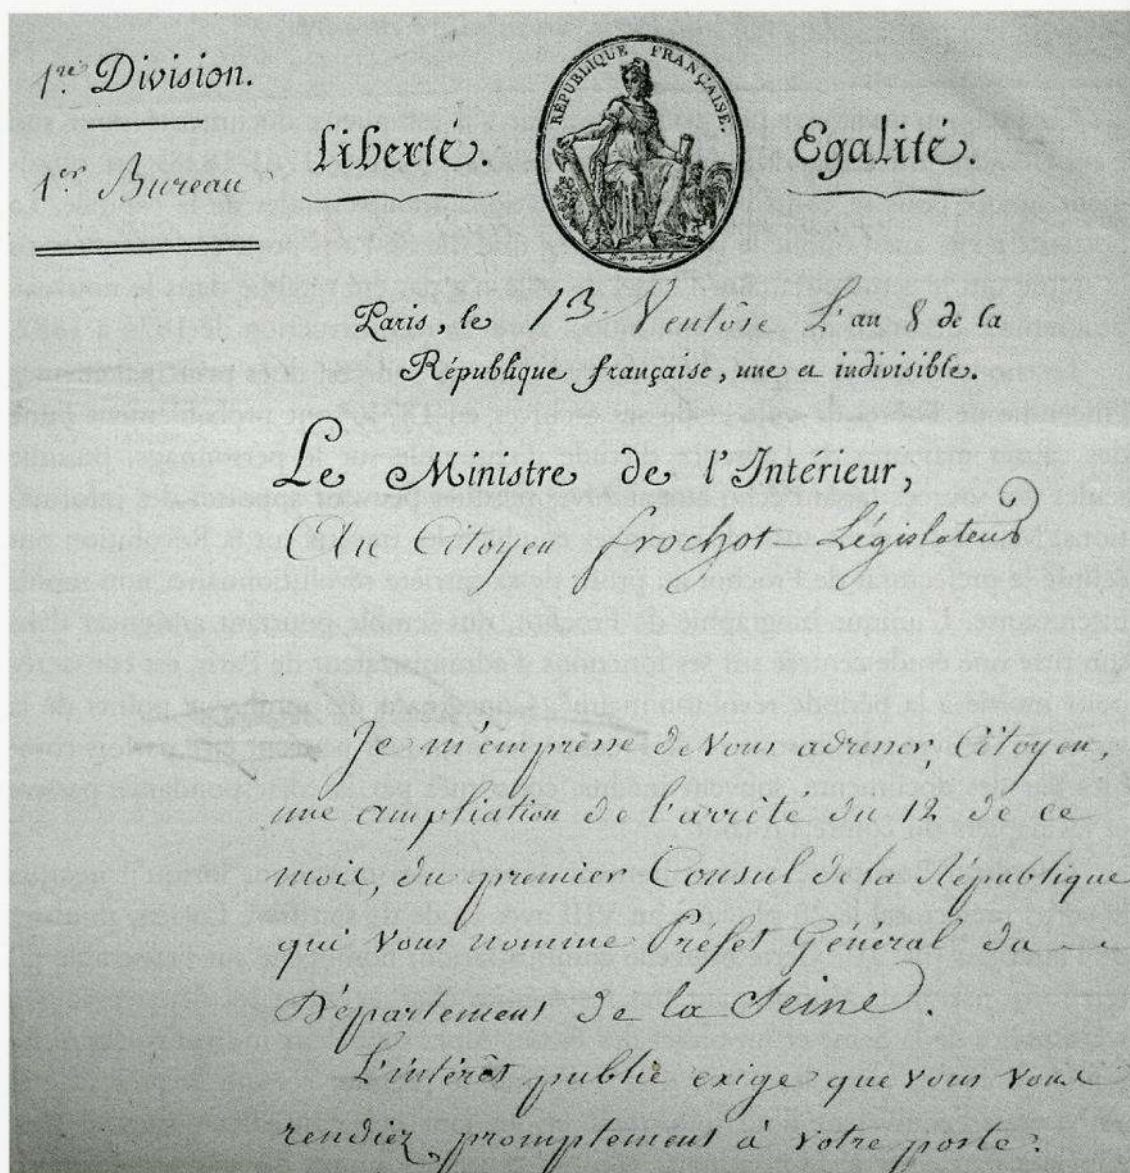 1re. Division.
1er Bureau
Liberté.
RÉPUBLIQUE FRANÇAISE.
Egalité.
Paris, le 13 Ventôse L'an 8 de la
République française, une et indivisible.
Le Ministre de l'Intérieur,
Au Citoyen Frochot Législateur
Je m'empresse de Vous adresser, Citoyen,
une ampliation de l'arrêté du 12 de ce
mois, du premier Consul de la République
qui vous nomme Préfet Général du
Département de la Seine.
L'intérêt public exige que vous vous
rendiez promptement à votre poste.